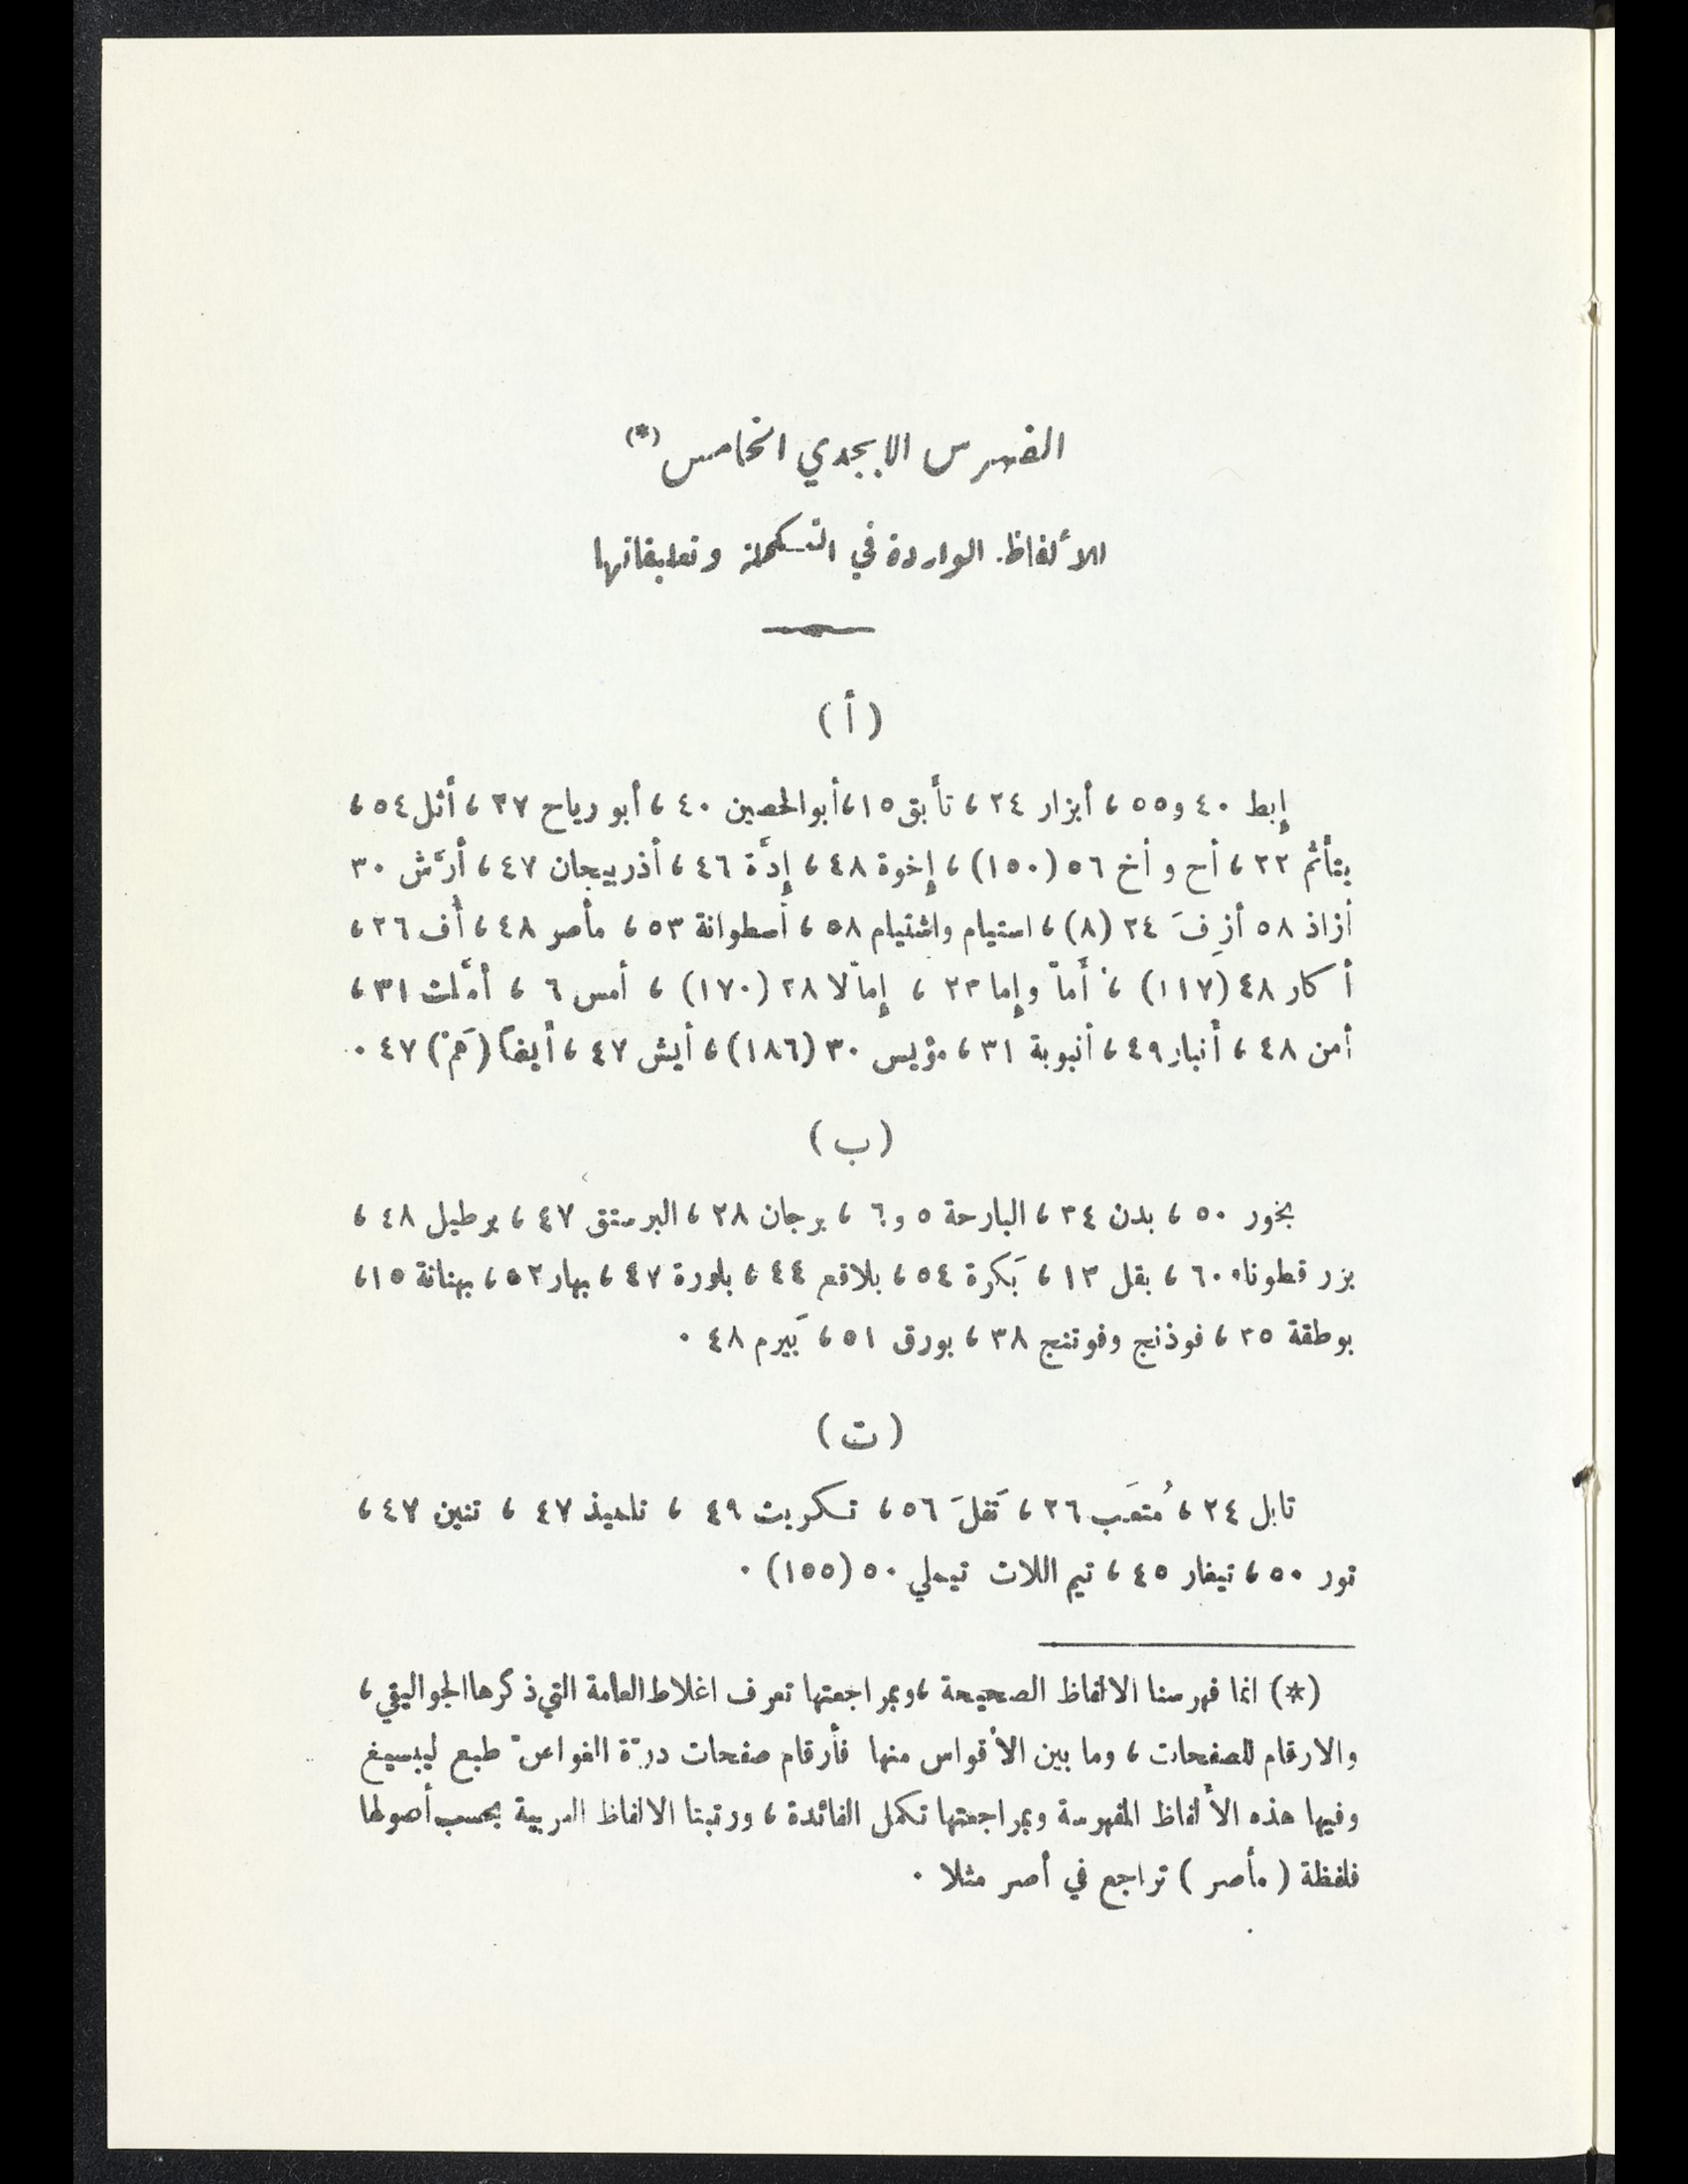 الفهرس الابجدي الخامس (*)
للألفاظ الواردة في التكملة وتعليقاتها
( أ )
إِبط ٤٠ و٥٥ ، أبزار ٢٤ ، تأبق ١٥ ، أبو الحصين ٤٠ ، أبو رياح ٢٧ ، أثل ٥٤ ،
يتأثم ٢٢ ، أح و أخ ٥٦ (١٥٠) ، إخوة ٤٨ ، إدَّة ٤٦ ، أذربيجان ٤٧ ، أرَّش ٣٠
أزاذ ٥٨ أزِفَ ٢٤ (٨) ، استيام واشتيام ٥٨ ، أسطوانة ٥٣ ، مأصر ٤٨ ، أُف ٢٦ ،
أكار ٤٨ (١١٧) ، أَمّا وإِما ٢٣ ، إِمّالا ٢٨ (١٧٠) ، أمس ٦ ، أمَّلت ٣١ ،
أمن ٤٨ ، أنبار ٤٩ ، أنبوبة ٣١ ، مؤيس ٣٠ (١٨٦) ، أيش ٤٧ ، أيضاً (هَمْ) ٤٧ .
( ب )
بخور ٥٠ ، بدن ٣٤ ، البارحة ٥ و٦ ، برجان ٢٨ ، البرستق ٤٧ ، برطيل ٤٨ ،
بزر قطوناء ٦٠ ، بقل ١٣ ، بَكرة ٥٤ ، بلاقع ٤٤ ، بلورة ٤٧ ، بهار ٥٢ ، بهنانة ١٥ ،
بوطقة ٢٥ ، فوذنج وفوتنج ٣٨ ، بورق ٥١ ، بَيرم ٤٨ .
( ت )
تابل ٢٤ ، مُتعَب ٢٦ ، تَفلَ ٥٦ ، تكريت ٤٩ ، تلميذ ٤٧ ، تنين ٤٧ ،
تور ٥٠ ، تيغار ٤٥ ، تيم اللات تيملي ٥٠ (١٥٥) .
(*) انما فهرسنا الالفاظ الصحيحة ، وبمراجعتها تعرف اغلاط العامة التي ذكرها الجواليقي ،
والارقام للصفحات ، وما بين الأقواس منها فأرقام صفحات درّة الغواص طبع ليبسيغ
وفيها هذه الألفاظ المفهرسة وبمراجعتها تكمل الفائدة ، ورتبنا الالفاظ العربية بحسب أصولها
فلفظة ( مأصر ) تراجع في أصر مثلا .